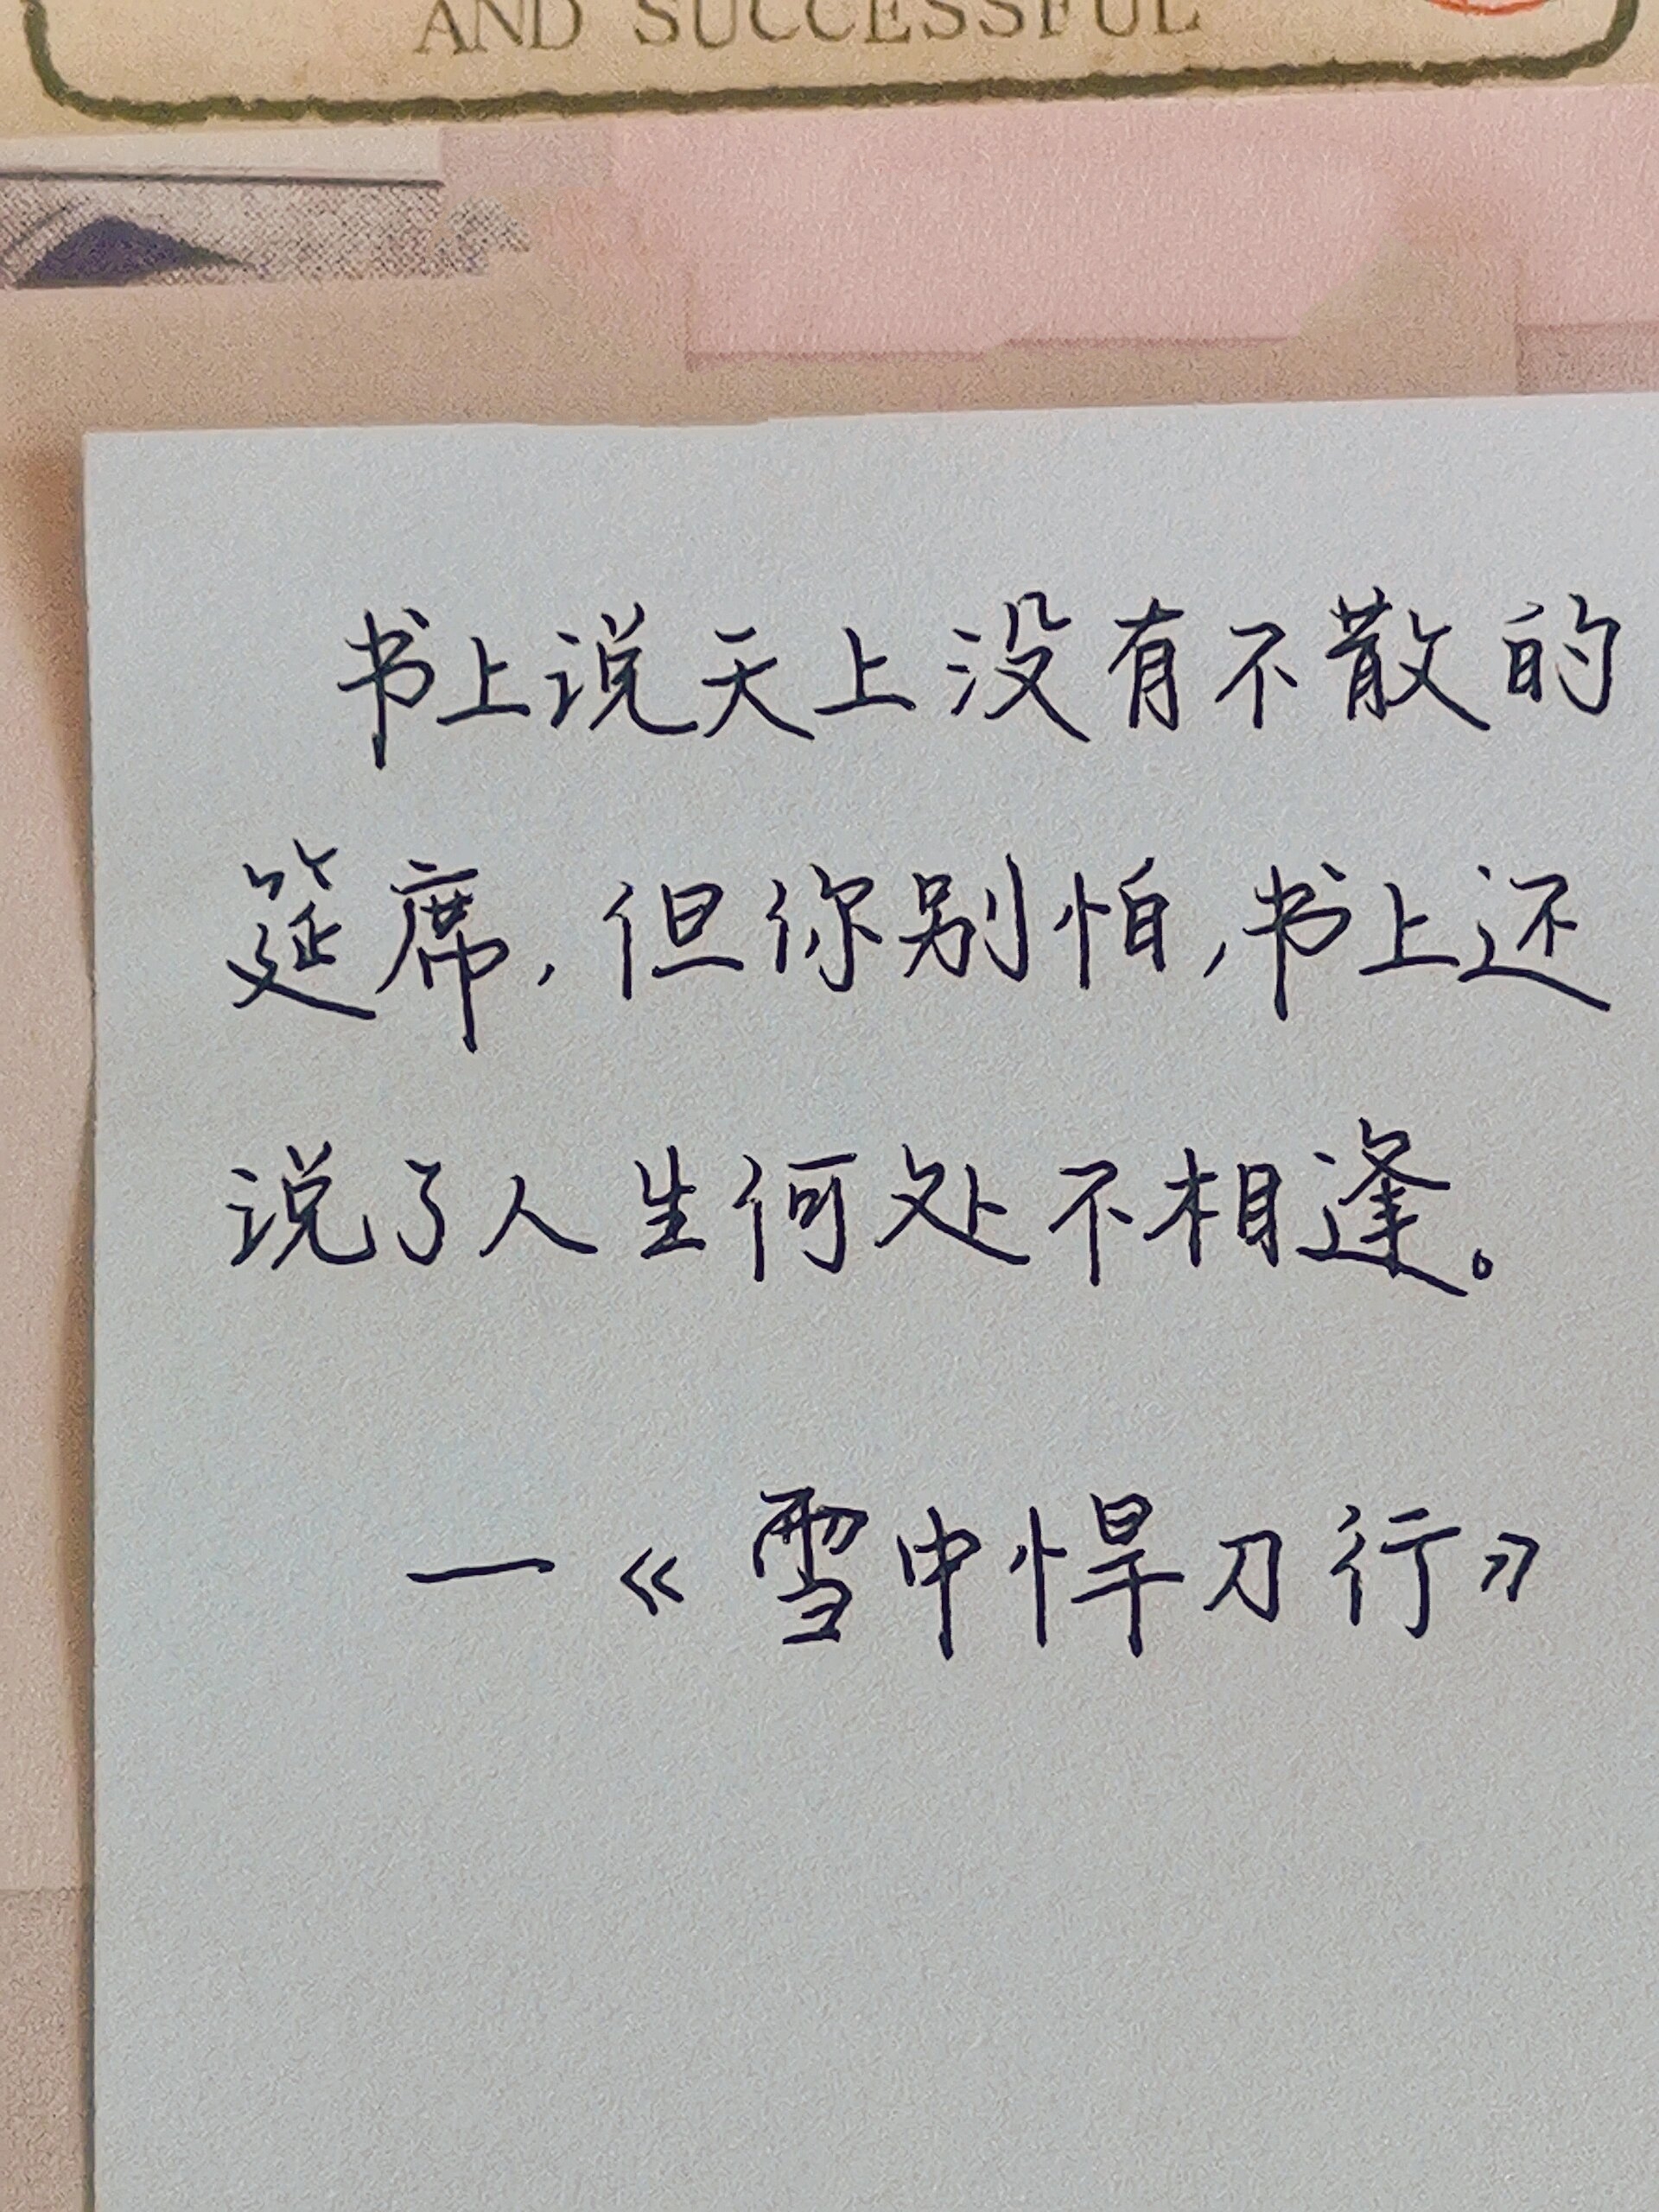 AND SUCCESSFUL
书上说天上没有不散的
筵席,但你别怕,书上还
说了人生何处不相逢。
—《雪中悍刀行》